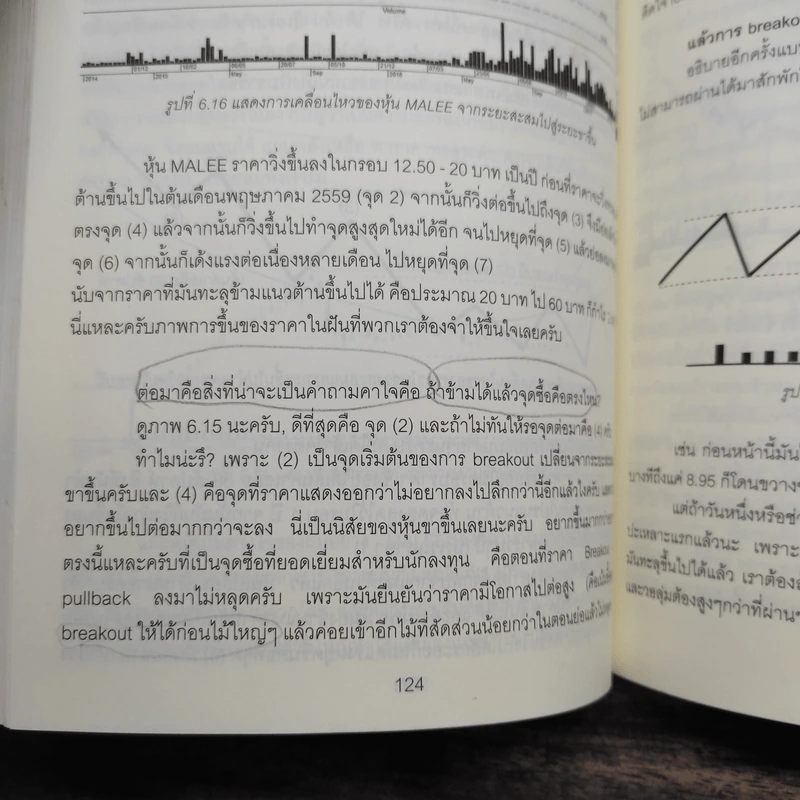 Volume
รูปที่ 6.16 แสดงการเคลื่อนไหวของหุ้น MALEE จากระยะสะสมไปสู่ระยะขาขึ้น
หุ้น MALEE ราคาวิ่งขึ้นลงในกรอบ 12.50 - 20 บาท เป็นปี ก่อนที่ราคาจะวิ่ง
ต้านขึ้นไปในต้นเดือนพฤษภาคม 2559 (จุด 2) จากนั้นก็วิ่งต่อขึ้นไปถึงจุด (3)
ตรงจุด (4) แล้วจากนั้นก็วิ่งขึ้นไปทำจุดสูงสุดใหม่ได้อีก จนไปหยุดที่จุด (5)
จุด (6) จากนั้นก็เด้งแรงต่อเนื่องหลายเดือน ไปหยุดที่จุด (7)
นับจากราคาที่มันทะลุข้ามแนวต้านขึ้นไปได้ คือประมาณ 20 บาท ไป 60 บาท ก็กำไร
นี่แหละครับภาพการขึ้นของราคาในฝันที่พวกเราต้องจำให้ขึ้นใจเลยครับ
ต่อมาคือสิ่งที่น่าจะเป็นคำถามคาใจคือ ถ้าข้ามได้แล้วจุดซื้อคือตรงไหน?
ดูภาพ 6.15 นะครับ, ดีที่สุดคือ จุด (2) และถ้าไม่ทันให้รอจุดต่อมาคือ (4) ครับ
ทำไมน่ะรึ? เพราะ (2) เป็นจุดเริ่มต้นของการ breakout เปลี่ยนจากระยะสะสม
ขาขึ้นครับและ (4) คือจุดที่ราคาแสดงออกว่าไม่อยากลงไปลึกกว่านี้อีกแล้วไงครับ
อยากขึ้นไปต่อมากกว่าจะลง นี่เป็นนิสัยของหุ้นขาขึ้นเลยนะครับ อยากขึ้นมากกว่า
ตรงนี้แหละครับที่เป็นจุดซื้อที่ยอดเยี่ยมสำหรับนักลงทุน คือตอนที่ราคา Breakout
pullback ลงมาไม่หลุดครับ เพราะมันยืนยันว่าราคามีโอกาสไปต่อสูง
breakout ให้ได้ก่อนไม้ใหญ่ๆ แล้วค่อยเข้าอีกไม้ที่สัดส่วนน้อยกว่าในตอนย่อแล้ว
124
แล้วการ
อธิบายอีกครั้ง
ไม่สามารถผ่านได้มาสักพัก
เช่น ก่อนหน้านี้มัน
บางทีถึงแค่ 8.95 ก็โดนขวาง
แต่ถ้าวันหนึ่งหรือ
ปะเหลาะแรกแล้วนะ เพราะ
มันทะลุขึ้นไปได้แล้ว เราต้อง
และวอลุ่มต้องสูงๆกว่าที่ผ่าน